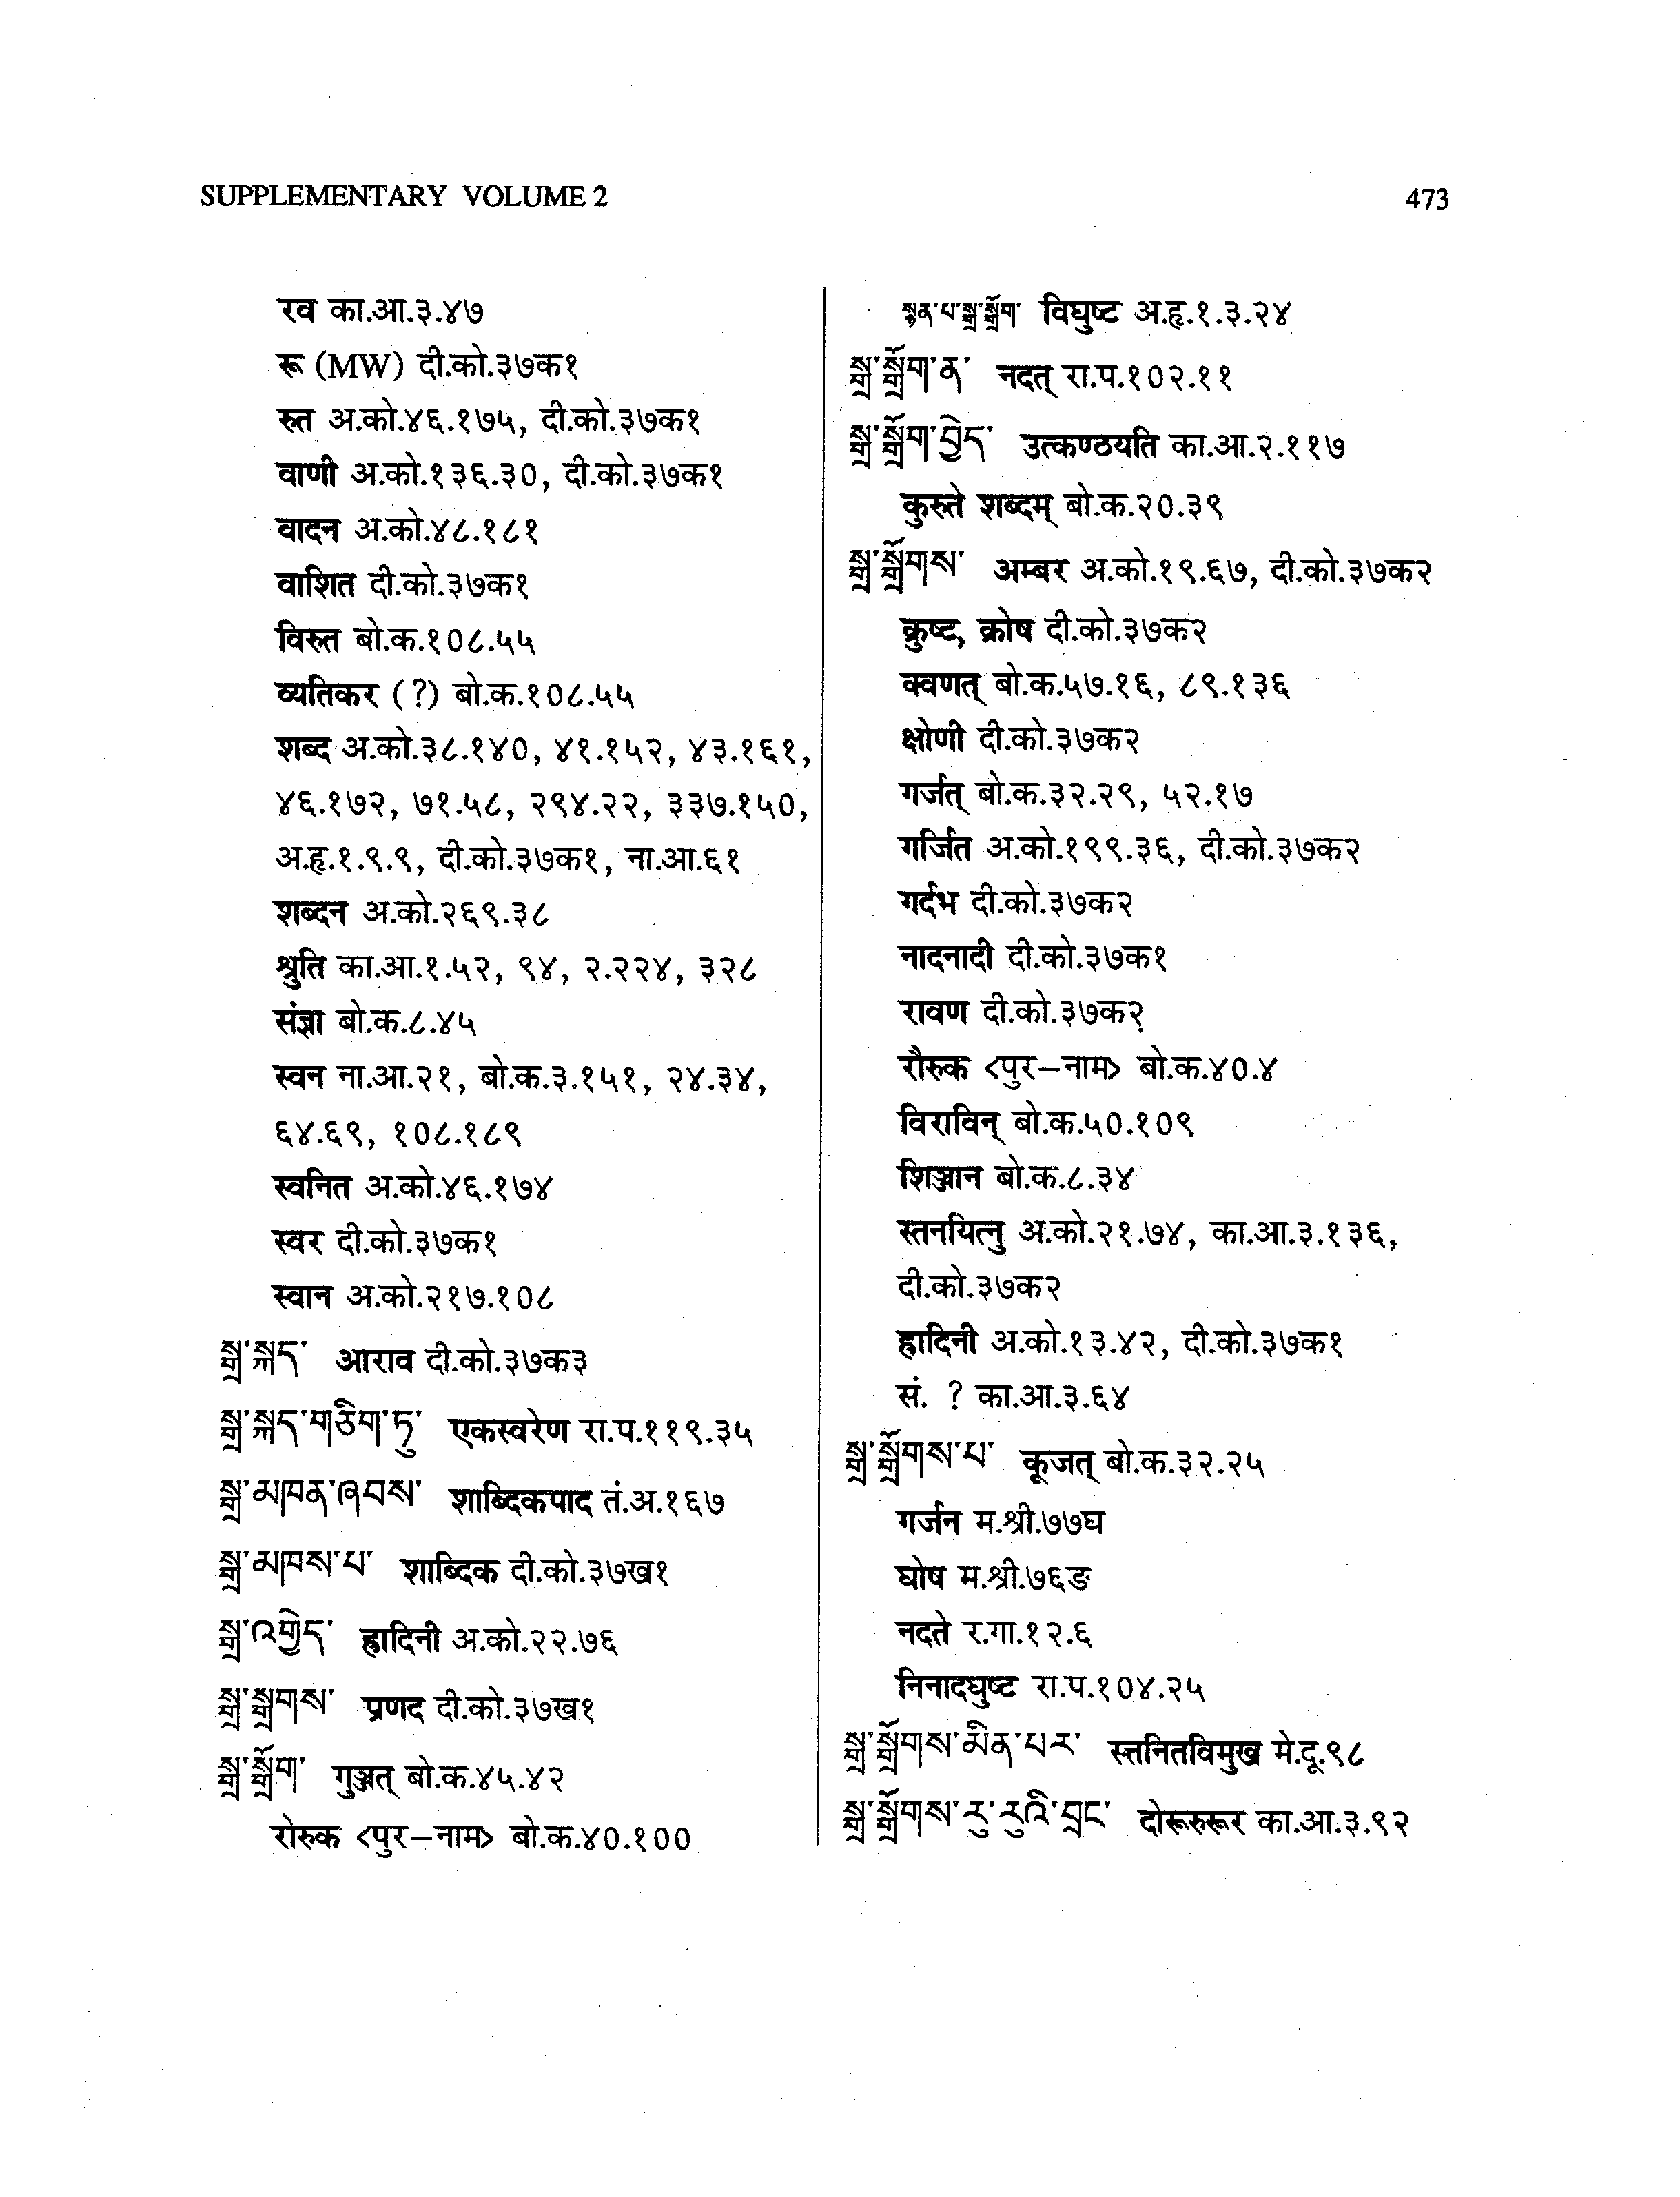 SUPPLEMENTARY VOLUME 2 473
रव का.आ.३.४७
रू (MW) दी.को.३७क१
रुत अ.को.४६.१७५, दी.को.३७क१
वाणी अ.को.१३६.३०, दी.को.३७क१
वादन अ.को.४८.१८१
वाशित दी.को.३७क१
विरुत बो.क.१०८.५५
व्यतिकर (?) बो.क.१०८.५५
शब्द अ.को.३८.१४०, ४१.१५२, ४३.१६१,
४६.१७२, ७१.५८, २९४.२२, ३३७.१५०,
अ.हृ.१.९.९, दी.को.३७क१, ना.आ.६१
शब्दन अ.को.२६९.३८
श्रुति का.आ.१.५२, ९४, २.२२४, ३२८
संज्ञा बो.क.८.४५
स्वन ना.आ.२१, बो.क.३.१५१, २४.३४,
६४.६९, १०८.१८९
स्वनित अ.को.४६.१७४
स्वर दी.को.३७क१
स्वान अ.को.२१७.१०८
སྒྲ་སྐད་ आराव दी.को.३७क३
སྒྲ་སྐད་གཅིག་ཏུ་ एकस्वरेण रा.प.११९.३५
སྒྲ་མཁན་ཞབས་ शाब्दिकपाद तं.अ.१६७
སྒྲ་མཁས་པ་ शाब्दिक दी.को.३७ख१
སྒྲ་འགྱེད་ ह्रादिनी अ.को.२२.७६
སྒྲ་སྒྲགས་ प्रणद दी.को.३७ख१
སྒྲ་སྒྲོག་ गुञ्जत् बो.क.४५.४२
रोरुक <पुर–नाम> बो.क.४०.१००
སྙན་པ་སྒྲ་སྒྲོག་ विघुष्ट अ.हृ.१.३.२४
སྒྲ་སྒྲོག་ན་ नदत् रा.प.१०२.११
སྒྲ་སྒྲོག་བྱེད་ उत्कण्ठयति का.आ.२.११७
कुरुते शब्दम् बो.क.२०.३९
སྒྲ་སྒྲོགས་ अम्बर अ.को.१९.६७, दी.को.३७क२
क्रुष्ट, क्रोष दी.को.३७क२
क्वणत् बो.क.५७.१६, ८९.१३६
क्षोणी दी.को.३७क२
गर्जत् बो.क.३२.२९, ५२.१७
गर्जित अ.को.१९९.३६, दी.को.३७क२
गर्दभ दी.को.३७क२
नादनादी दी.को.३७क१
रावण दी.को.३७क२
रौरुक <पुर–नाम> बो.क.४०.४
विराविन् बो.क.५०.१०९
शिञ्जान बो.क.८.३४
स्तनयित्नु अ.को.२१.७४, का.आ.३.१३६,
दी.को.३७क२
ह्रादिनी अ.को.१३.४२, दी.को.३७क१
सं. ? का.आ.३.६४
སྒྲ་སྒྲོགས་པ་ कूजत् बो.क.३२.२५
गर्जन म.श्री.७७घ
घोष म.श्री.७६ङ
नदते र.गा.१२.६
निनादघुष्ट रा.प.१०४.२५
སྒྲ་སྒྲོགས་མིན་པར་ स्तनितविमुख मे.दू.९८
སྒྲ་སྒྲོགས་རུ་རུའི་བྲང་ दोरूरुरूर का.आ.३.९२